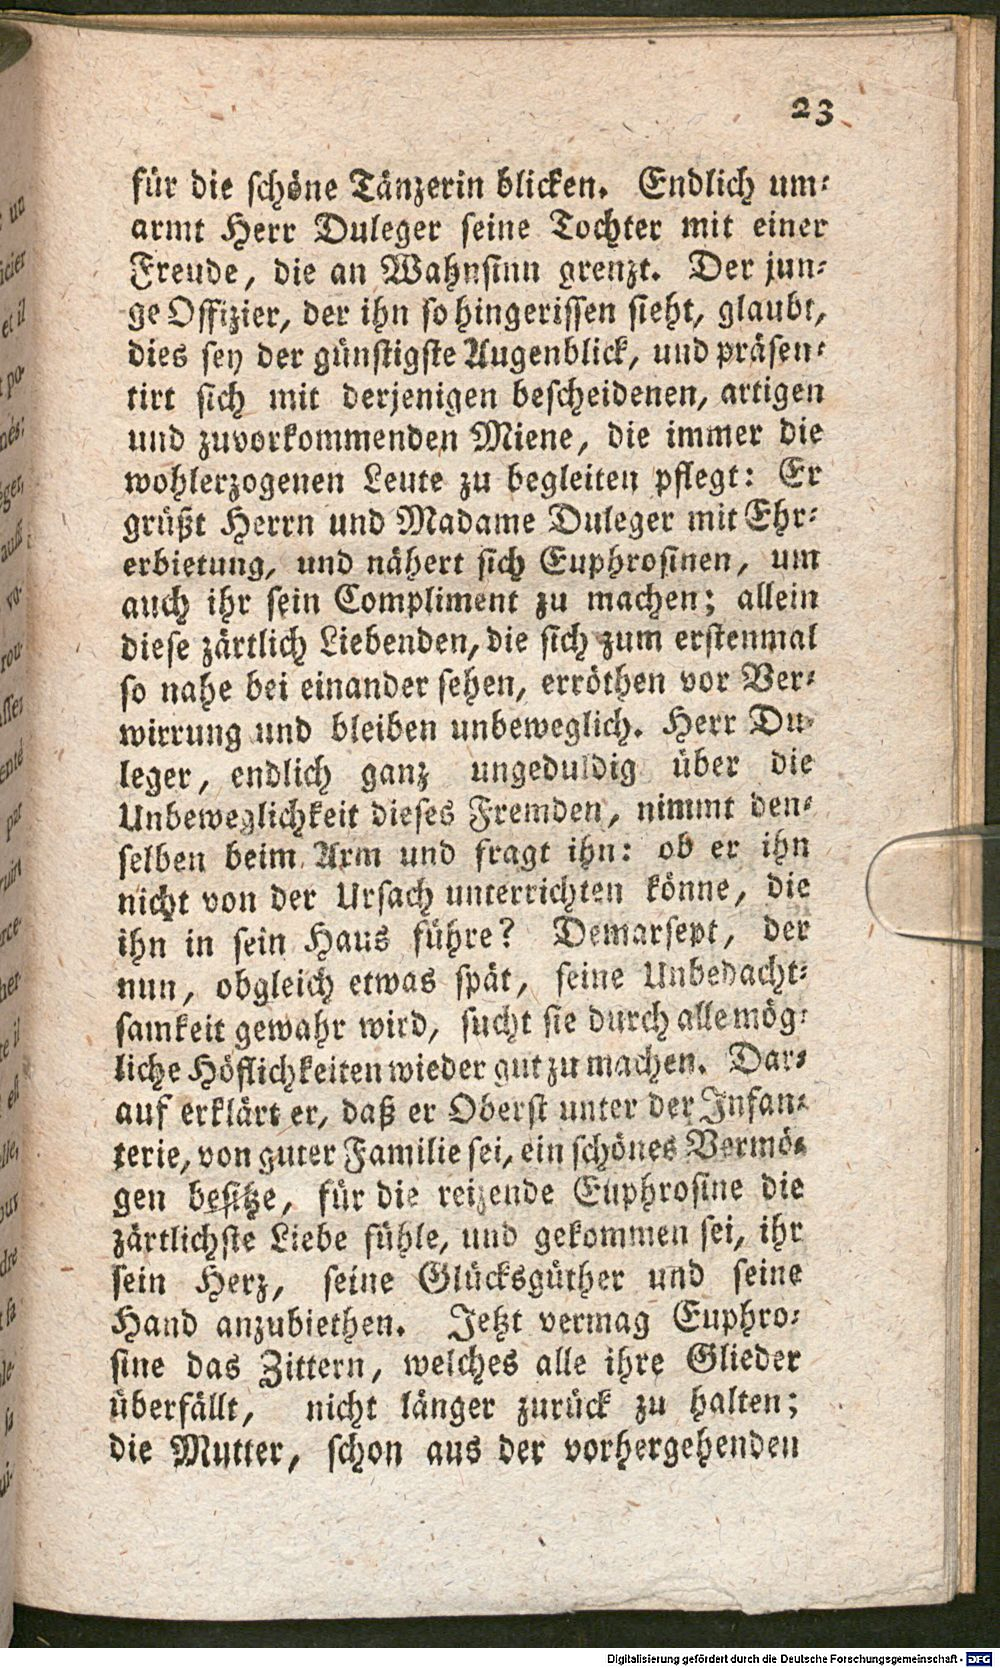 23
für die schöne Tänzerin blicken. Endlich um-
armt Herr Duleger seine Tochter mit einer
Freude, die an Wahnsinn grenzt. Der jun-
ge Offizier, der ihn so hingerissen sieht, glaubt,
dies sey der günstigste Augenblick, und präsen-
tirt sich mit derjenigen bescheidenen, artigen
und zuvorkommenden Miene, die immer die
wohlerzogenen Leute zu begleiten pflegt: Er
grüßt Herrn und Madame Duleger mit Ehr-
erbietung, und nähert sich Euphrosinen, um
auch ihr sein Compliment zu machen; allein
diese zärtlich Liebenden, die sich zum erstenmal
so nahe bei einander sehen, erröthen vor Ver-
wirrung und bleiben unbeweglich. Herr Du-
leger, endlich ganz ungeduldig über die
Unbeweglichkeit dieses Fremden, nimmt den-
selben beim Arm und fragt ihn: ob er ihn
nicht von der Ursach unterrichten könne, die
ihn in sein Haus führe? Demarsept, der
nun, obgleich etwas spät, seine Unbedacht-
samkeit gewahr wird, sucht sie durch alle mög-
liche Höflichkeiten wieder gut zu machen. Dar-
auf erklärt er, daß er Oberst unter der Infan-
terie, von guter Familie sei, ein schönes Vermö-
gen besitze, für die reizende Euphrosine die
zärtlichste Liebe fühle, und gekommen sei, ihr
sein Herz, seine Glücksgüther und seine
Hand anzubiethen. Jetzt vermag Euphro-
sine das Zittern, welches alle ihre Glieder
überfällt, nicht länger zurück zu halten;
die Mutter, schon aus der vorhergehenden
Digitalisierung gefördert durch die Deutsche Forschungsgemeinschaft - DFG